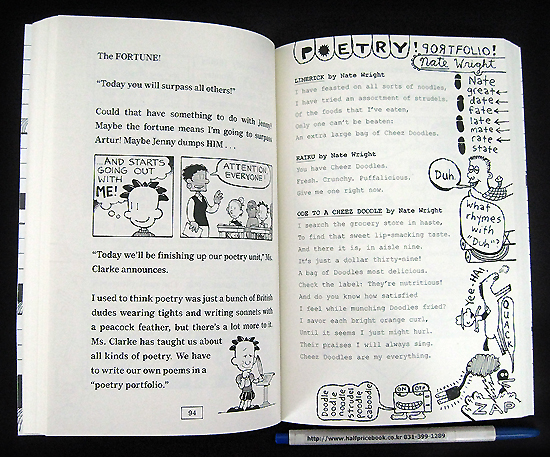 The FORTUNE!
"Today you will surpass all others!"
Could that have something to do with Jenny?
Maybe the fortune means I'm going to surpass
Artur! Maybe Jenny dumps HIM . . .
...AND STARTS
GOING OUT
WITH
ME!
ATTENTION
EVERYONE!
"Today we'll be finishing up our poetry unit," Ms.
Clarke announces.
I used to think poetry was just a bunch of British
dudes wearing tights and writing sonnets with
a peacock feather, but there's a lot more to it.
Ms. Clarke has taught us about
all kinds of poetry. We have
to write our own poems in a
"poetry portfolio."
94
POETRY PORTFOLIO!
Nate Wright
LIMERICK by Nate Wright
I have feasted on all sorts of noodles,
I have tried an assortment of strudels.
Of the foods that I've eaten,
Only one can't be beaten:
An extra large bag of Cheez Doodles.
HAIKU by Nate Wright
You have Cheez Doodles.
Fresh. Crunchy. Puffalicious.
Give me one right now.
ODE TO A CHEEZ DOODLE by Nate Wright
I search the grocery store in haste,
To find that sweet lip-smacking taste.
And there it is, in aisle nine.
It's just a dollar thirty-nine!
A bag of Doodles most delicious.
Check the label: They're nutritious!
And do you know how satisfied
I feel while munching Doodles fried?
I savor each bright orange curl,
Until it seems I just might hurl.
Their praises I will always sing.
Cheez Doodles are my everything.
Nate
great
date
fate
late
mate
rate
state
Duh.
what
rhymes
with
"Duh"?
Yee-HA!
QUACK
ZAP
Doodle
oodle
noodle
strudel
poodle
caboodle
ON OFF
http://www.halfpricebook.co.kr 031-399-1289